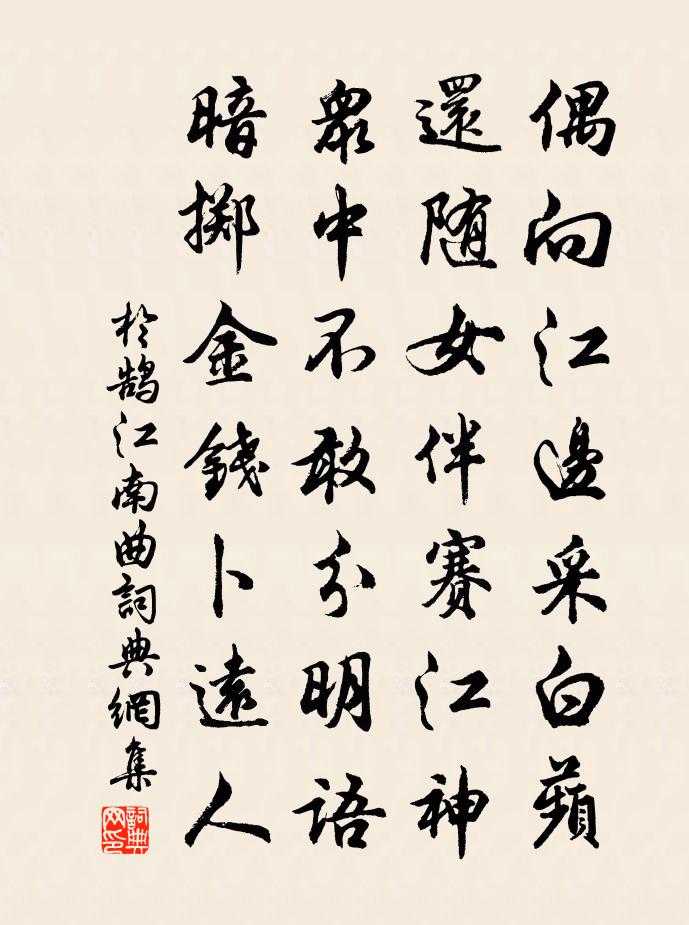 偶向江邊采白蘋
還随女伴賽江神
眾中不敢分明語
暗擲金錢卜遠人
於鵠江南曲詞典網集
詞典網印